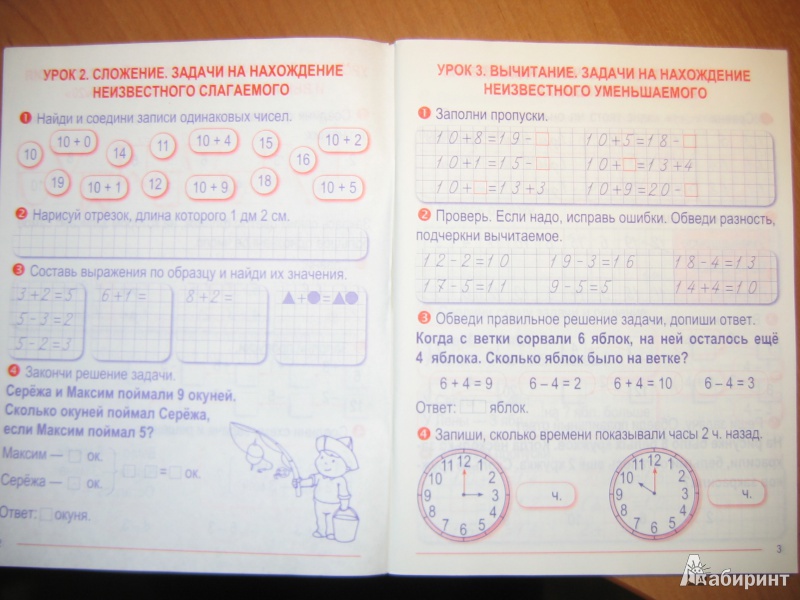 УРОК 2. СЛОЖЕНИЕ. ЗАДАЧИ НА НАХОЖДЕНИЕ
НЕИЗВЕСТНОГО СЛАГАЕМОГО
1 Найди и соедини записи одинаковых чисел.
10 10 + 0 14 11 10 + 4 15 16 10 + 2
19 10 + 1 12 10 + 9 18 10 + 5
2 Нарисуй отрезок, длина которого 1 дм 2 см.
3 Составь выражения по образцу и найди их значения.
3+2=5 6+1= 8+2= ▲+●=▲●
5-3=2
5-2=3
4 Закончи решение задачи.
Серёжа и Максим поймали 9 окуней.
Сколько окуней поймал Серёжа,
если Максим поймал 5?
Максим — □ ок.
□ □ = □ ок.
Серёжа — □ ок.
Ответ: □ окуня.
УРОК 3. ВЫЧИТАНИЕ. ЗАДАЧИ НА НАХОЖДЕНИЕ
НЕИЗВЕСТНОГО УМЕНЬШАЕМОГО
1 Заполни пропуски.
10+8=19-□ 10+5=18-□
10+1=15-□ 10+□=13+4
10+□=13+3 10+9=20-□
2 Проверь. Если надо, исправь ошибки. Обведи разность,
подчеркни вычитаемое.
12-2=10 19-3=16 18-4=13
17-5=11 9-5=5 14+4=10
3 Обведи правильное решение задачи, допиши ответ.
Когда с ветки сорвали 6 яблок, на ней осталось ещё
4 яблока. Сколько яблок было на ветке?
6 + 4 = 9 6 – 4 = 2 6 + 4 = 10 6 – 4 = 3
Ответ: □□ яблок.
4 Запиши, сколько времени показывали часы 2 ч. назад.
12 1 2 3 4 5 6 7 8 9 10 11
ч.
12 1 2 3 4 5 6 7 8 9 10 11
ч.
3
Лабиринт